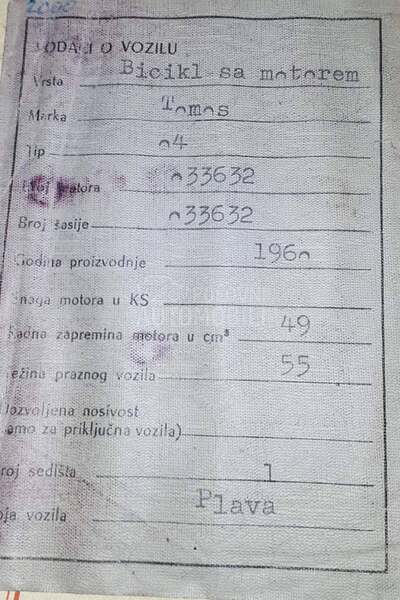 2000
PODACI O VOZILU
Vrsta Bicikl sa motorem
Marka Tomos
Tip 04
Broj motora 033632
Broj šasije 033632
Godina proizvodnje 1960
Snaga motora u KS
POLOVNI
AUTOMOBILI
Radna zapremina motora u cm³ 49
ežina praznog vozila 55
Dozvoljena nosivost
amo za priključna vozila)
roj sedišta 1
oja vozila Plava